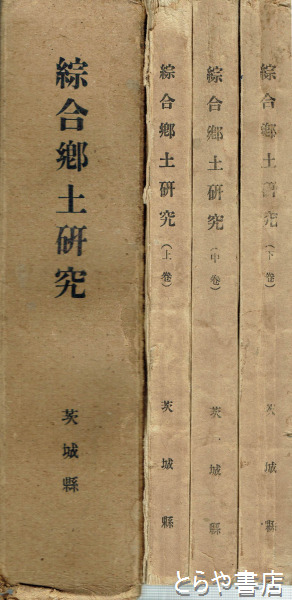 綜合鄉土硏究
茨城縣
綜合鄉土硏究（上卷）
茨城縣
綜合鄉土硏究（中卷）
茨城縣
綜合鄉土硏究（下卷）
茨城縣
とらや書店